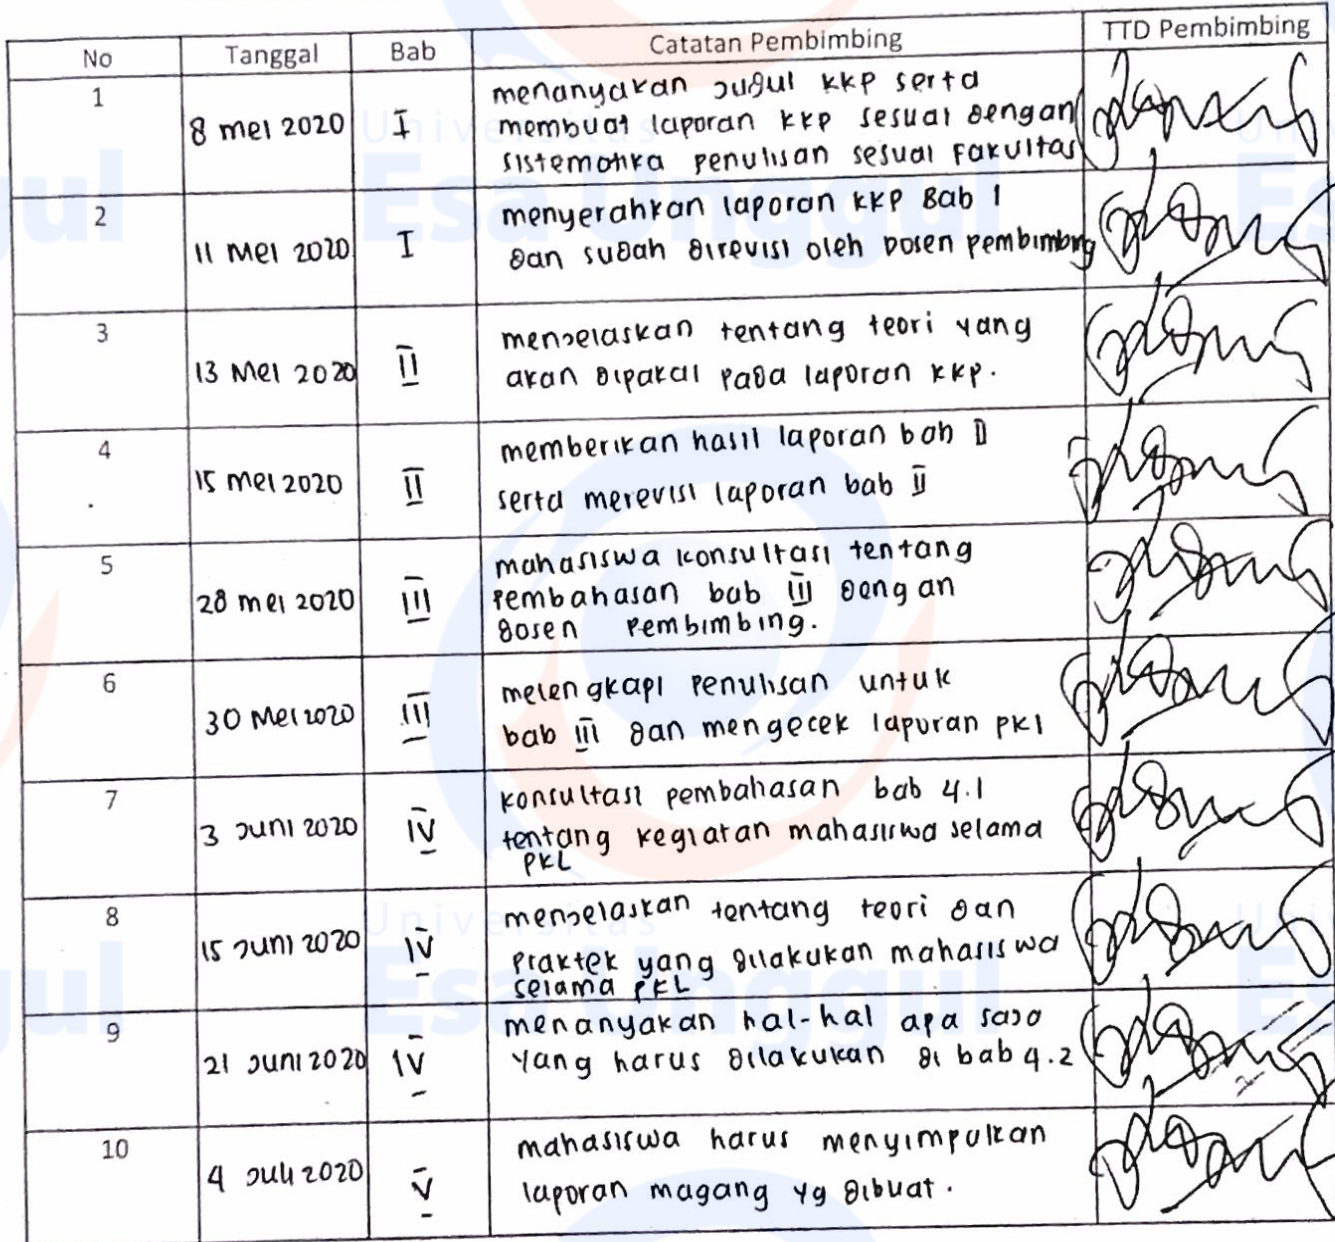 No Tanggal Bab Catatan Pembimbing TTD Pembimbing
1 8 mei 2020 I menanyakan judul kkp serta
membuat laporan kkp sesuai dengan
sistematika penulisan sesuai Fakultas
2 11 Mei 2020 I menyerahkan laporan kkp Bab 1
dan sudah direvisi oleh Dosen pembimbing
3 13 Mei 2020 II menjelaskan tentang teori yang
akan dipakai pada laporan kkp.
4 15 mei 2020 II memberikan hasil laporan bab II
serta merevisi laporan bab II
5 28 mei 2020 III mahasiswa konsultasi tentang
pembahasan bab III dengan
dosen Pembimbing.
6 30 Mei 2020 III melengkapi penulisan untuk
bab III dan mengecek lapuran pkl
7 3 Juni 2020 IV konsultasi pembahasan bab 4.1
tentang kegiatan mahasiswa selama
PKL
8 15 Juni 2020 IV menjelaskan tentang teori dan
praktek yang dilakukan mahasiswa
selama PKL
9 21 Juni 2020 IV menanyakan hal-hal apa saja
yang harus dilakukan di bab 4.2
10 4 Juli 2020 V mahasiswa harus menyimpulkan
laporan magang yg dibuat.
Universitas
Esa Unggul
Universitas
Esa Unggul